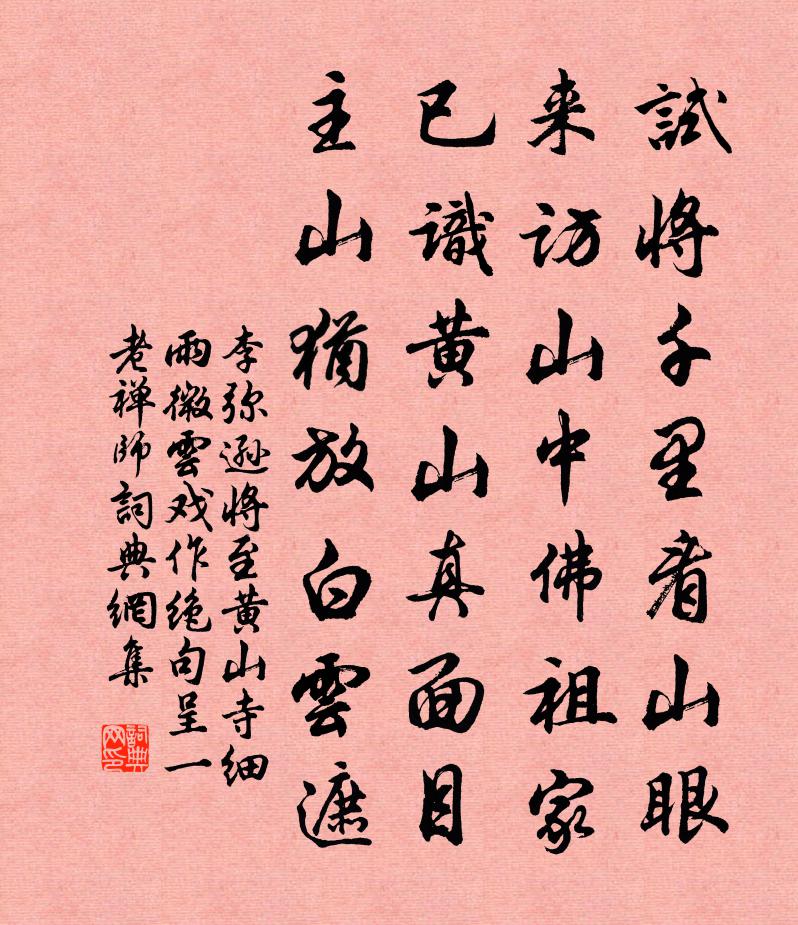 試將千里看山眼
来訪山中佛祖家
已識黄山真面目
主山猶放白雲遮
李弥遜將至黄山寺细
雨微雲戏作绝句呈一
老禅師詞典網集
詞典
网印